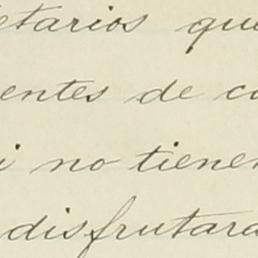 etarios que
entes de c
i no tienen
disfrutara